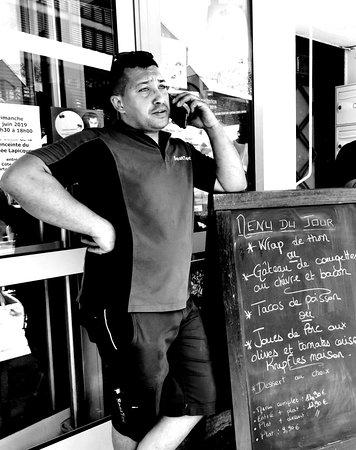 imanche
juin 2019
h30 à 18h00
enceinte du
ée Lapicque
MENU DU JOUR
* Wrap de thon
ou
* Gâteau de courgettes
au chèvre et bacon
* Tacos de poisson
ou
* Joues de Porc aux
olives et tomates cerise
Knepfles maison.
* Dessert au choix
Menu complet : 14,90 €
Entrée + plat : 12,90 €
Plat + dessert : //
Plat : 9,90 €